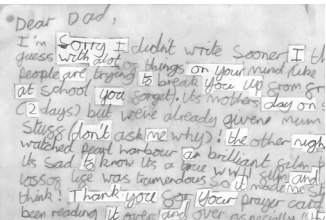 Dear Dad,
I'm Sorry I didn't write Sooner I th
guess with alot of things on your mind like
people are trying to break you up from gr
at school you forget). Its mothers day on
(2 days) but we've already given mum
Stuff (don't ask me why)! the other nigh
watched pearl harbour a brilliant film
its sad to know its a true WWII film and
losses use was tremendous so it made me
think! Thank you for Your prayer card
been reading it over and over especially "